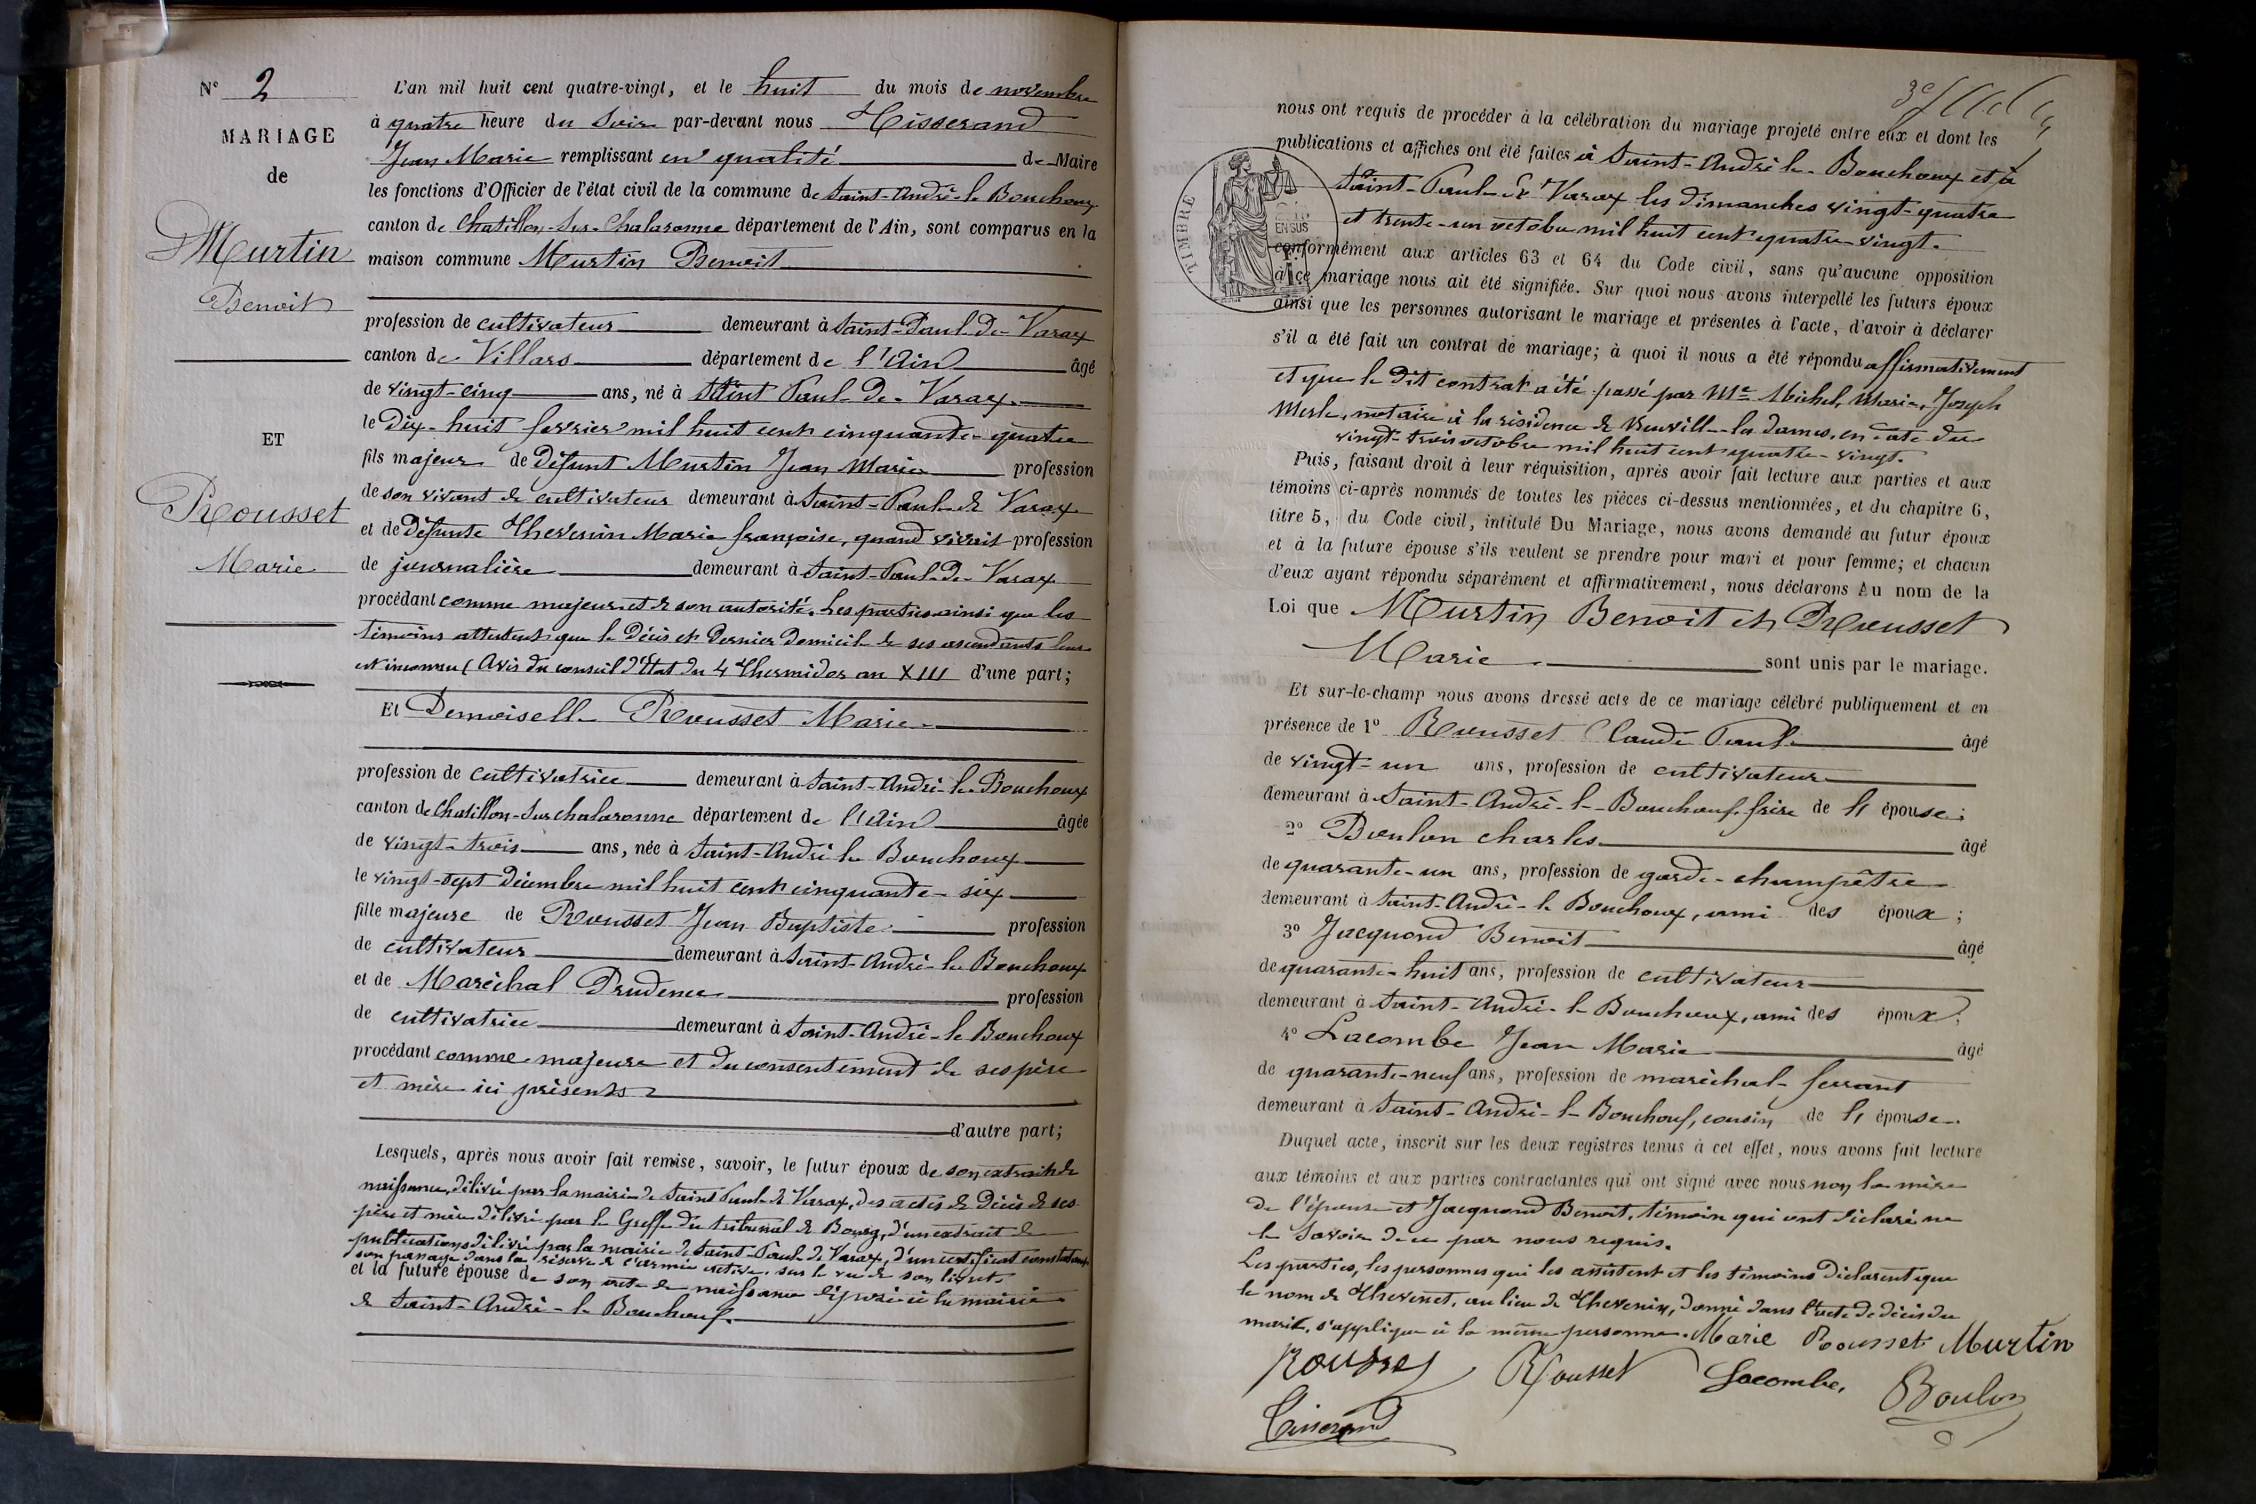 N° 2
MARIAGE
de
Murtin
Benoit
ET
Rousset
Marie
L'an mil huit cent quatre-vingt, et le huit du mois de novembre
à quatre heure du Soir par-devant nous Tisserand
Jean Marie remplissant en qualité de Maire
les fonctions d'Officier de l'état civil de la commune de Saint-André-le Bouchoux
canton de Chatillon-Sur-Chalaronne département de l'Ain, sont comparus en la
maison commune Murtin Benoit
profession de cultivateur demeurant à Saint-Paul-De-Varax
canton de Villars département de l'Ain âgé
de vingt-cinq ans, né à Saint Paul-De-Varax
le Dix-huit fevrier mil huit cent cinquante-quatre
fils majeur de Défunt Murtin Jean Marie profession
de son vivant de cultivateur demeurant à Saint-Paul-de Varax
et de Défunte Thevenin Marie françoise, quand vivait profession
de journalière demeurant à Saint-Paul-De-Varax
procédant comme majeur et de son autorité. Les parties ainsi que les
témoins attestent que le Décès et Dernier Domicile de ses ascendants leur
est inconnu (Avis du conseil d'Etat du 4 Thermidor an XIII d'une part;
Et Demoiselle Rousset Marie
profession de cultivatrice demeurant à Saint-André-le-Bouchoux
canton de Chatillon-Sur chalaronne département de l'Ain âgée
de vingt-trois ans, née à Saint-André le Bouchoux
le vingt-sept Décembre mil huit cent cinquante-six
fille majeure de Rousset Jean Baptiste profession
de cultivateur demeurant à Saint-André-le Bouchoux
et de Maréchal Prudence profession
de cultivatrice demeurant à Saint-André-le Bouchoux
procédant comme majeure et du consentement de ses père
et mère ici présents
d'autre part;
Lesquels, après nous avoir fait remise, savoir, le futur époux de son extrait de
naissance, délivré par la mairie de Saint Paul-de Varax, des actes de Décès de ses
père et mère délivré par le Greffe du tribunal de Bourg, d'un extrait de
publications délivré par la mairie de Saint-Paul-de Varax, d'un certificat constatant
son passage dans la réserve de l'armée active, sur le vu de son livret
et la future épouse de son acte de naissance déposé à la mairie
de Saint-André-le Bouchoux.
nous ont requis de procéder à la célébration du mariage projeté entre eux et dont les
publications et affiches ont été faites à Saint-André le-Bouchoux et à
Saint-Paul-de Varax les dimanches vingt-quatre
et trente-un octobre mil huit cent quatre-vingt.
TIMBRE
conformément aux articles 63 et 64 du Code civil, sans qu'aucune opposition
à ce mariage nous ait été signifiée. Sur quoi nous avons interpellé les futurs époux
ainsi que les personnes autorisant le mariage et présentes à l'acte, d'avoir à déclarer
s'il a été fait un contrat de mariage; à quoi il nous a été répondu affirmativement
et que le Dit contrat a été passé par Me Michel, Marie, Joseph
Merle, notaire à la résidence de Neuville-les dames, en date du
vingt-trois octobre mil huit cent quatre-vingt.
Puis, faisant droit à leur réquisition, après avoir fait lecture aux parties et aux
témoins ci-après nommés de toutes les pièces ci-dessus mentionnées, et du chapitre 6,
titre 5, du Code civil, intitulé Du Mariage, nous avons demandé au futur époux
et à la future épouse s'ils veulent se prendre pour mari et pour femme; et chacun
d'eux ayant répondu séparément et affirmativement, nous déclarons Au nom de la
Loi que Murtin Benoit et Rousset
Marie sont unis par le mariage.
Et sur-le-champ nous avons dressé acte de ce mariage célébré publiquement et en
présence de 1° Rousset Claude Paul âgé
de vingt-un ans, profession de cultivateur
demeurant à Saint-André-le-Bouchoux, frère de l'épouse;
2° Boulon Charles âgé
de quarante-un ans, profession de garde-champêtre
demeurant à Saint-André-le Bouchoux, ami des époux;
3° Jacquand Benoit âgé
de quarante-huit ans, profession de cultivateur
demeurant à Saint-André-le-Bouchoux, ami des époux;
4° Lacombe Jean Marie âgé
de quarante-neuf ans, profession de maréchal-ferrant
demeurant à Saint-André-le-Bouchoux, cousin de l'épouse.
Duquel acte, inscrit sur les deux registres tenus à cet effet, nous avons fait lecture
aux témoins et aux parties contractantes qui ont signé avec nous non la mère
de l'épouse et Jacquand Benoit, témoin qui ont déclaré ne
le Savoir de ce par nous requis.
Les parties, les personnes qui les assistent et les témoins Déclarent que
le nom de Thevenet, au lieu de Thevenin, donné dans l'acte de décès du
mari, s'applique à la même personne. Marie Rousset Murtin
Rousset Rousset Lacombe, Boulon
Tisserand